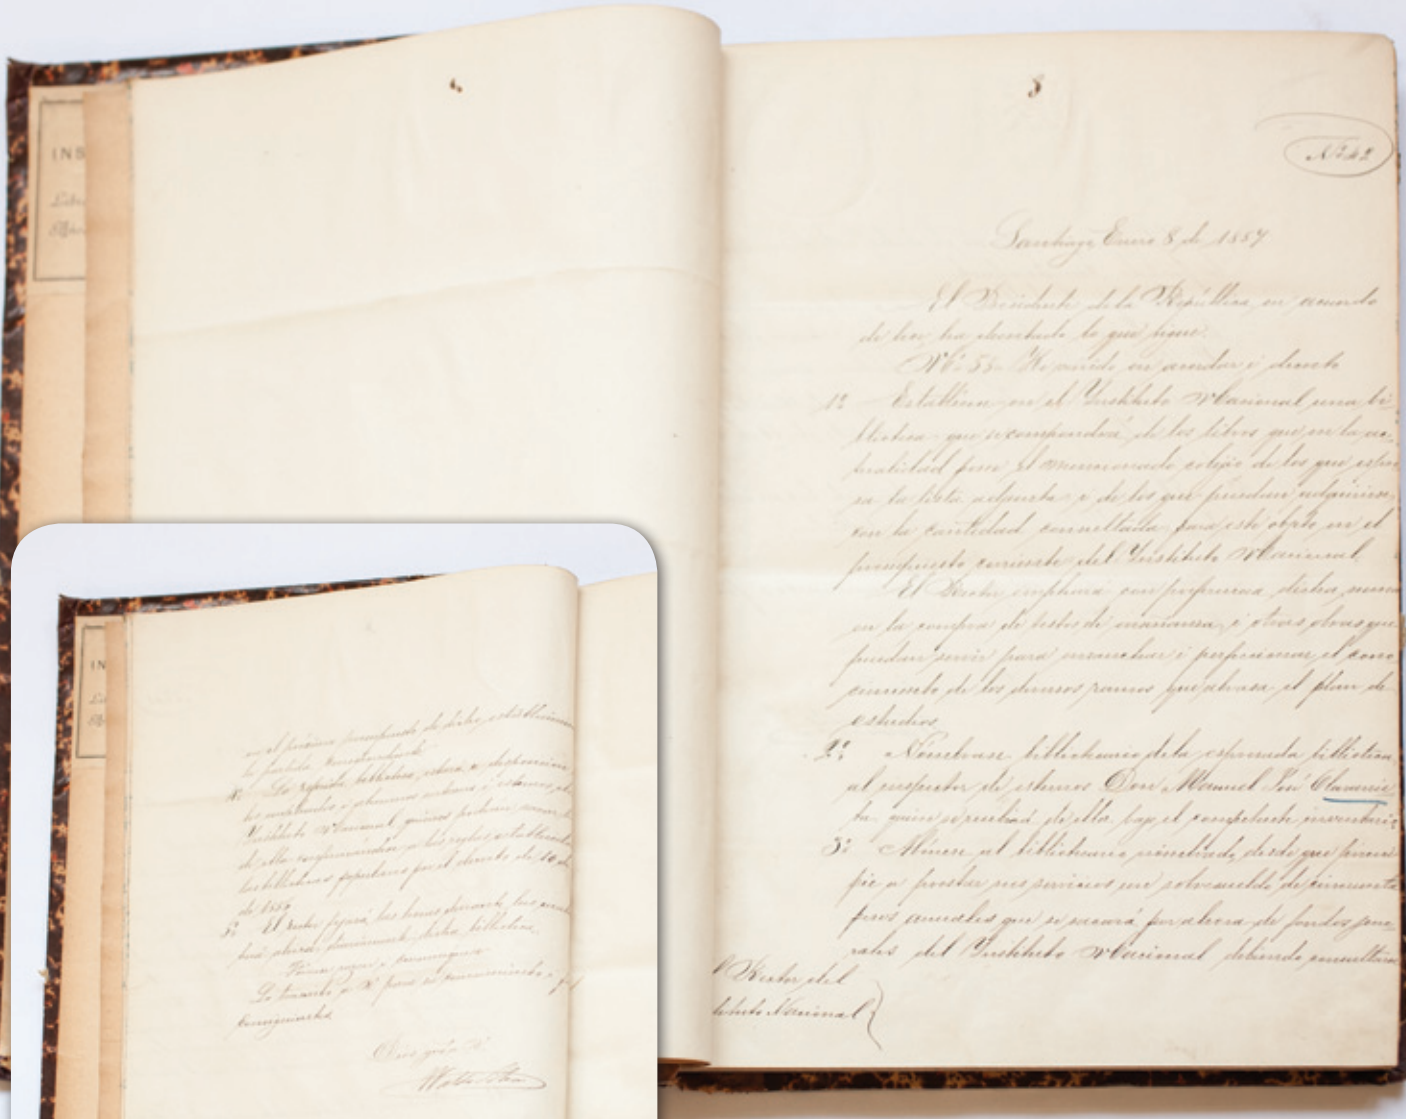 8
Nº 42
Santiago, Enero 8 de 1887
El Presidente de la República, en acuerdo
de hoi ha decretado lo que sigue:
Nº 55. He venido en acordar i decreto
1º Establécese en el Instituto Nacional una bi-
blioteca que se compondrá de los libros que en la ac-
tualidad posee el mencionado colejio de los que espre-
sa la lista adjunta i de los que puedan adquirirse,
con la cantidad consultada para este objeto en el
presupuesto corriente del Instituto Nacional.
El Rector empleará con preferencia dicha suma
en la compra de testos de enseñanza, i otras obras que
puedan servir para ensanchar i perfeccionar el cono-
cimiento de los diversos ramos que abrasa el plan de
estudios.
2º Nómbrase bibliotecario de la espresada biblioteca
al inspector de esternos Don Manuel José Olavarrie-
ta quien se recibirá de ella bajo el competente inventario.
3º Abónese al bibliotecario nombrado, desde que princi-
pie a prestar sus servicios un sobresueldo de cincuenta
pesos anuales que se sacará por ahora de fondos jene-
rales del Instituto Nacional debiendo consultarse
Rector del
Instituto Nacional
INS
IN
en el próximo presupuesto de dicho establecimien
la partida correspondiente
4º La referida biblioteca estará a disposición
los empleados i alumnos internos i esternos del
Instituto Nacional, quienes podrán
de ella conformándose a las reglas establecidas
las bibliotecas populares por el decreto de 16 de
de 1856
5º El Rector fijará las horas durante las cuales
abrirse diariamente dicha biblioteca.
Tómese razón i comuníquese
Lo trascribo a V. para su conocimiento i
consiguientes
Dios gue a V.